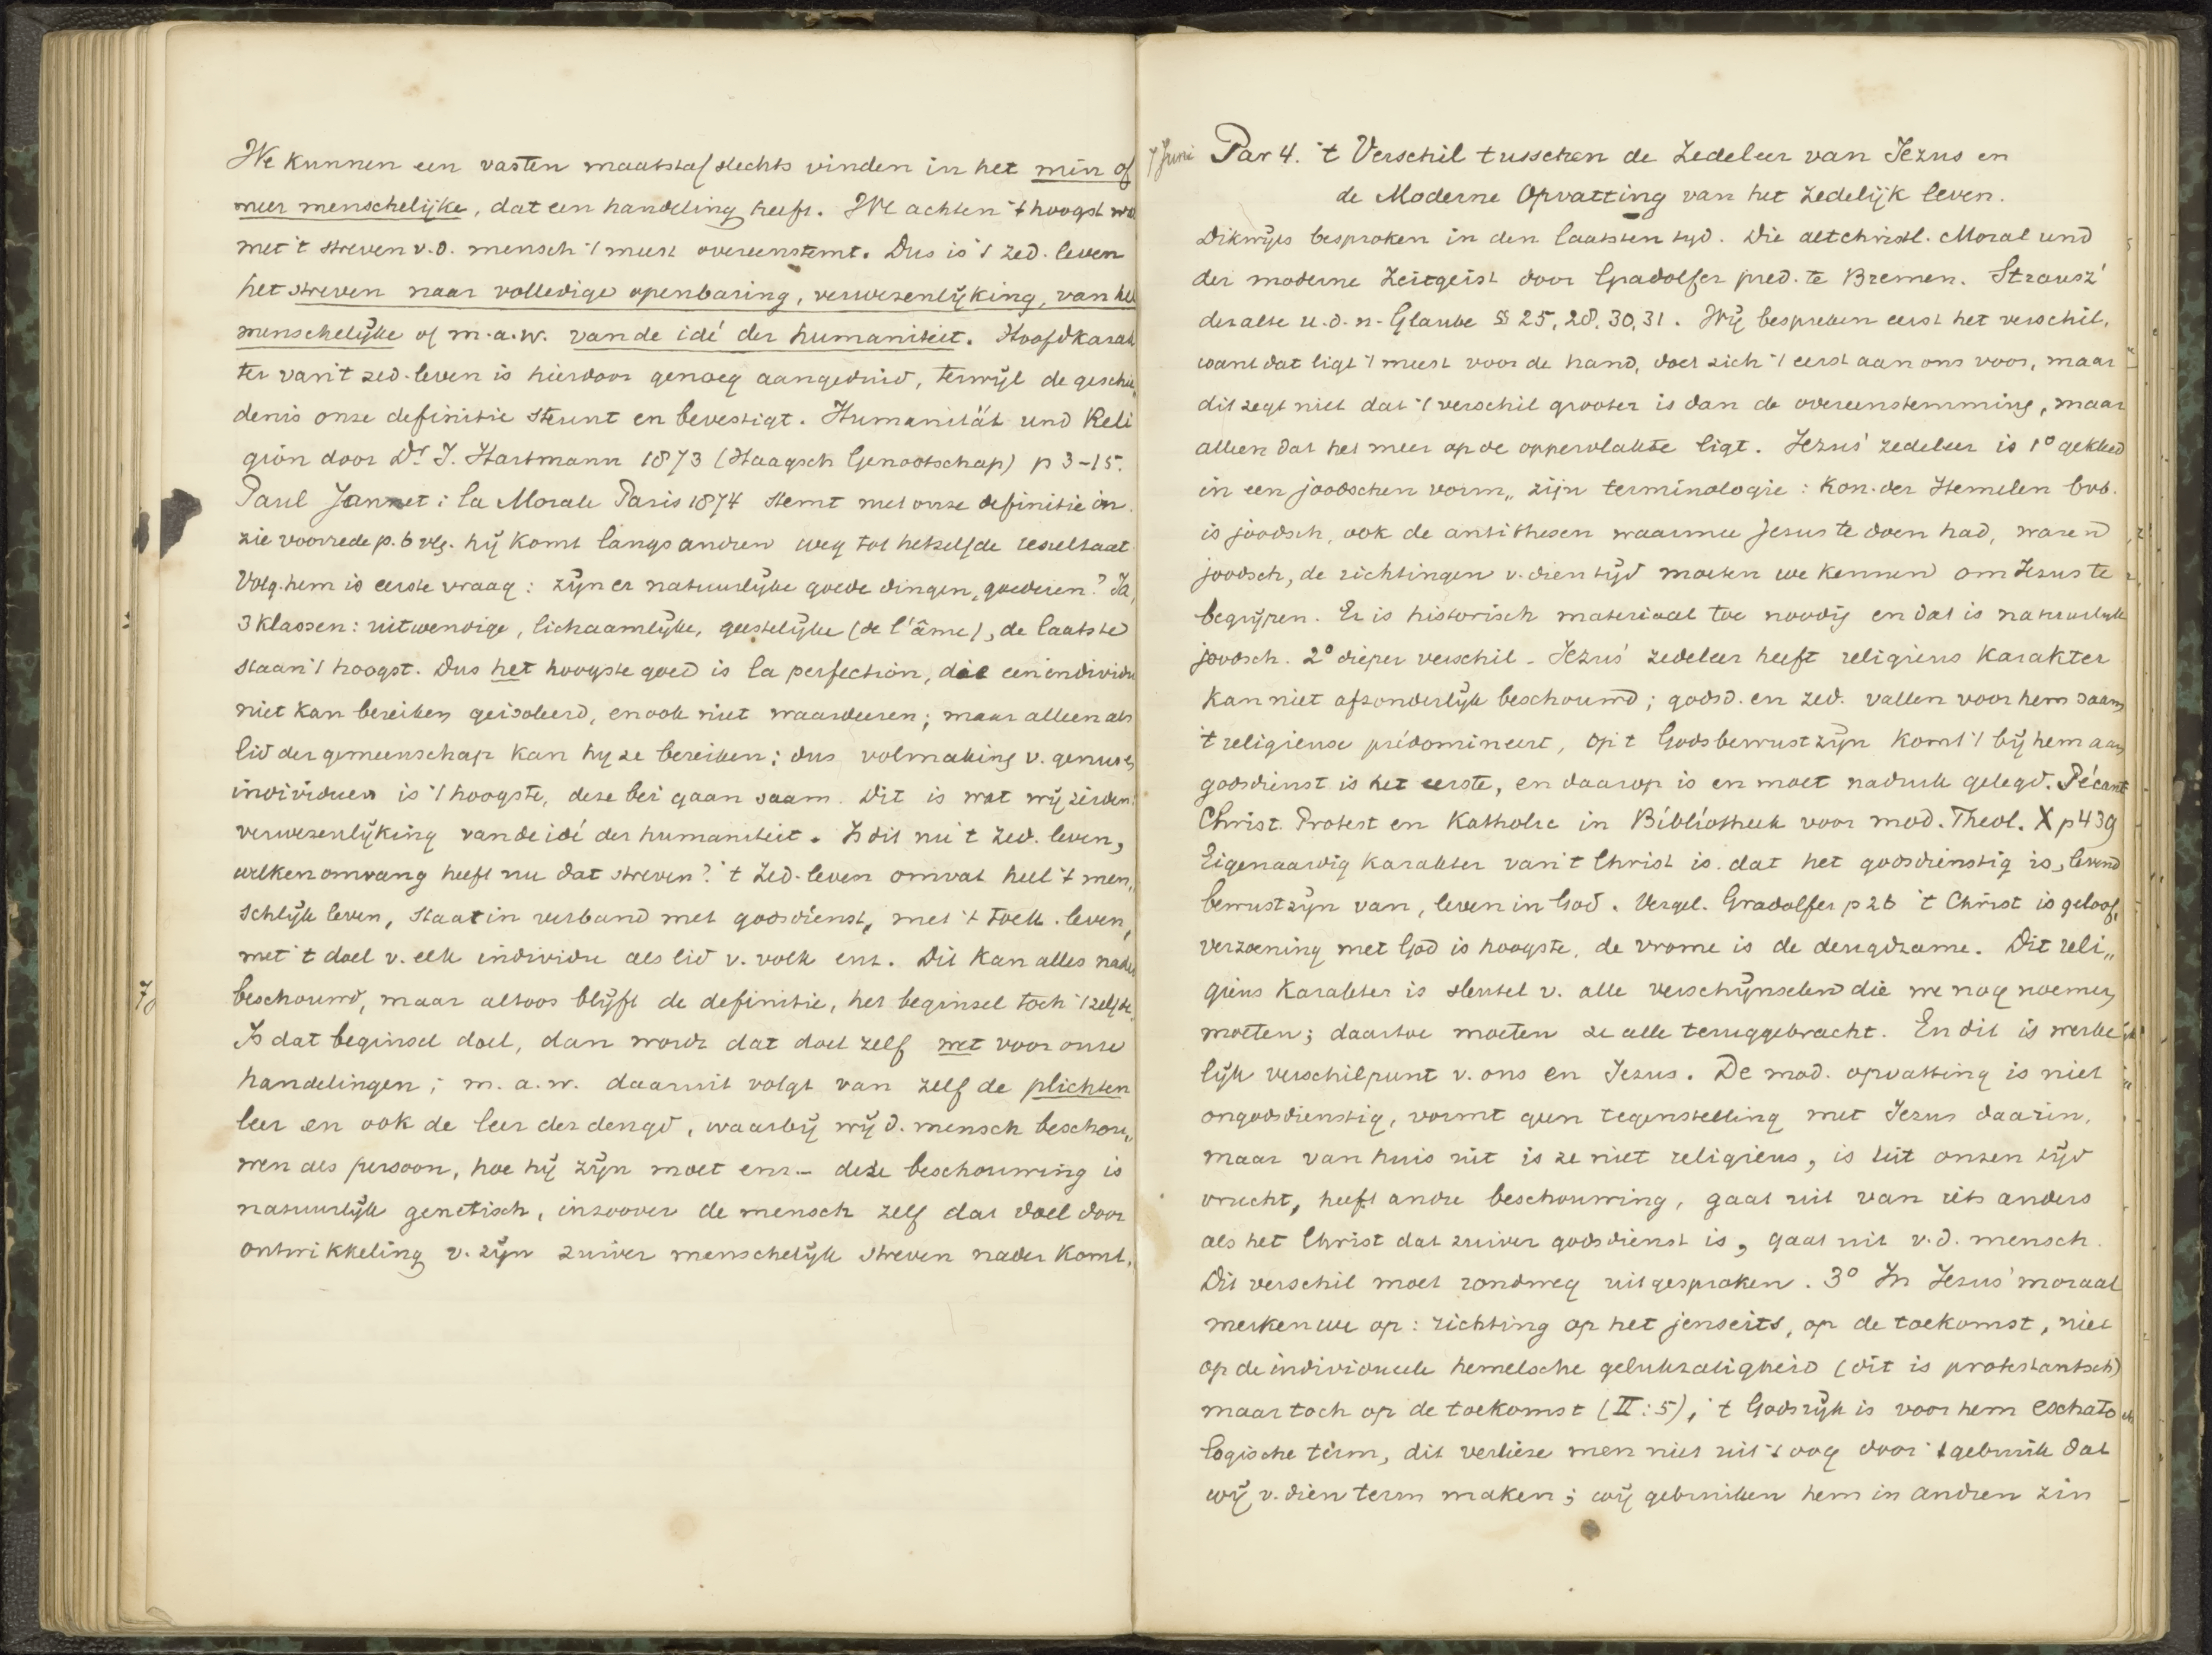 We kunnen een vasten maatstaf slechts vinden in het min of
meer menschelijke, dat een handeling heeft. We achten 't hoogst wa
met 't streven v.d. mensch 't meest overeenstemt. Dus is 't zed. leven
het streven naar volledige openbaring, verwezenlijking, van het
menschelijke of m.a.w. van de idé der humaniteit. Hoofdkarak
ter van 't zed. leven is hierdoor genoeg aangeduid, terwijl de geschie
denis onze definitie steunt en bevestigt. Humanität und Reli
gion door Dr J. Hartmann 1873 (Haagsch Genootschap) p 3-15.
Paul Jannet: la Morale Paris 1874 stemt met onze definitie in.
zie voorrede p. 6 vlg. hij komt langs andren weg tot hetzelfde resultaat
Volg. hem is eerste vraag: zijn er natuurlijke goede dingen, goederen? Ja,
3 klassen: uitwendige, lichaamlijke, geestelijke (de l'âme), de laatste
staan 't hoogst. Dus het hoogste goed is la perfection, die een individu
niet kan bereiken geisoleerd, en ook niet waardeeren; maar alleen als
lid der gemeenschap kan hy ze bereiken; dus volmaking v. genus en
individuen is 't hoogste, deze bei gaan saam. Dit is wat wij zeiden:
verwezenlijking van de idé der humaniteit. Is dit nu 't zed. leven,
welken omvang heeft nu dat streven? 't Zed. leven omvat heel 't men„
schlijk leven, staat in verband met godsdienst, met 't toek. leven,
met 't doel v. elk individu als lid v. volk enz. Dit kan alles nader
beschouwd, maar altoos blijft de definitie, het beginsel toch 't zelfde.
Is dat beginsel doel, dan wordt dat doel zelf wet voor onze
handelingen; m.a.w. daaruit volgt van zelf de plichten
leer en ook de leer der deugd, waarbij wij d. mensch beschou„
wen als persoon, hoe hij zijn moet enz.- deze beschouwing is
natuurlijk genetisch, inzoover de mensch zelf dat doel door
ontwikkeling v. zijn zuiver menschelijk streven nader komt.
7 Juni Par 4. 't Verschil tusschen de Zedeleer van Jezus en
de Moderne Opvatting van het zedelijk leven.
Dikwijls besproken in den laatsten tijd. Die altchristl. Moral und
der moderne Zeitgeist door Gradolfer pred. te Bremen. Strausz'
der alte u.d.n. Glaube §§ 25, 28, 30, 31. Wij bespreken eerst het verschil,
want dat ligt 't meest voor de hand, doet zich 't eerst aan ons voor, maar
dit zegt niet dat 't verschil grooter is dan de overeenstemming, maar
alleen dat het meer op de oppervlakte ligt. Jezus' zedeleer is 1º gekleed
in een joodschen vorm„ zijn terminologie: Kon. der Hemelen bvb.
is joodsch, ook de antithesen waarmee Jezus te doen had, waren
joodsch, de richtingen v. dien tijd moeten we kennen om Jezus te
begrijpen. Er is historisch materiaal toe noodig en dat is natuurlijk
joodsch. 2º dieper verschil - Jezus' zedeleer heeft religieus karakter
kan niet afzonderlijk beschouwd; godsd. en zed. vallen voor hem saam
't religieuse prédomineert, op 't Godsbewustzijn komt 't bij hem aan
godsdienst is het eerste, en daarop is en moet nadruk gelegd. Pécaut
Christ. Protest en Katholic in Bibliotheek voor mod. Theol. X p 439
Eigenaardig karakter van 't Christ is dat het godsdienstig is, levend
bewustzijn van, leven in God. Vergel. Gradolfer p 26 't Christ is geloof,
verzoening met God is hoogste, de vrome is de deugdzame. Dit reli„
gieus karakter is sleutel v. alle verschijnselen die we nog noemen
moeten; daartoe moeten ze alle teruggebracht. En dit is werke
lijk verschilpunt v. ons en Jezus. De mod. opvatting is niet
ongodsdienstig, vormt geen tegenstelling met Jezus daarin,
maar van huis uit is ze niet religieus, is uit onzen tijd
vrucht, heeft andre beschouwing, gaat uit van iets anders
als het Christ dat zuiver godsdienst is, gaat uit v.d. mensch.
Dit verschil moet rondweg uitgesproken. 3º In Jezus' moraal
merken we op: richting op het jenseits, op de toekomst, niet
op de individueele hemelsche gelukzaligheid (dit is protestantsch)
maar toch op de toekomst (II:5), 't Godsrijk is voor hem eschato
logische term, dit verlieze men niet uit 't oog door 't gebruik dat
wij v. dien term maken; wij gebruiken hem in andren zin